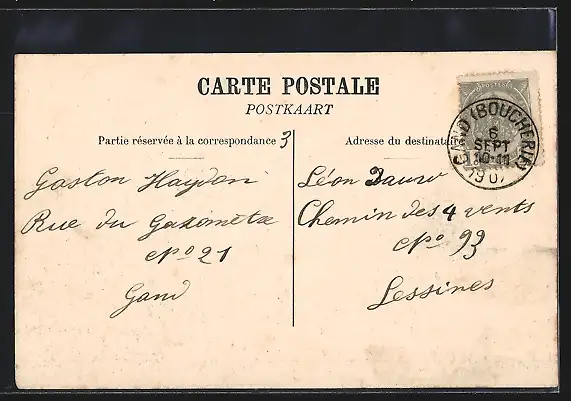 CARTE POSTALE
POSTKAART
Partie réservée à la correspondance 3
Adresse du destinataire
GAND (BOUCHERIE)
6
SEPT
10-11
190
Gaston Haydon
Rue du Gazometre
No 21
Gand
Léon
Chemin des 4 vents
No 93
Lessines